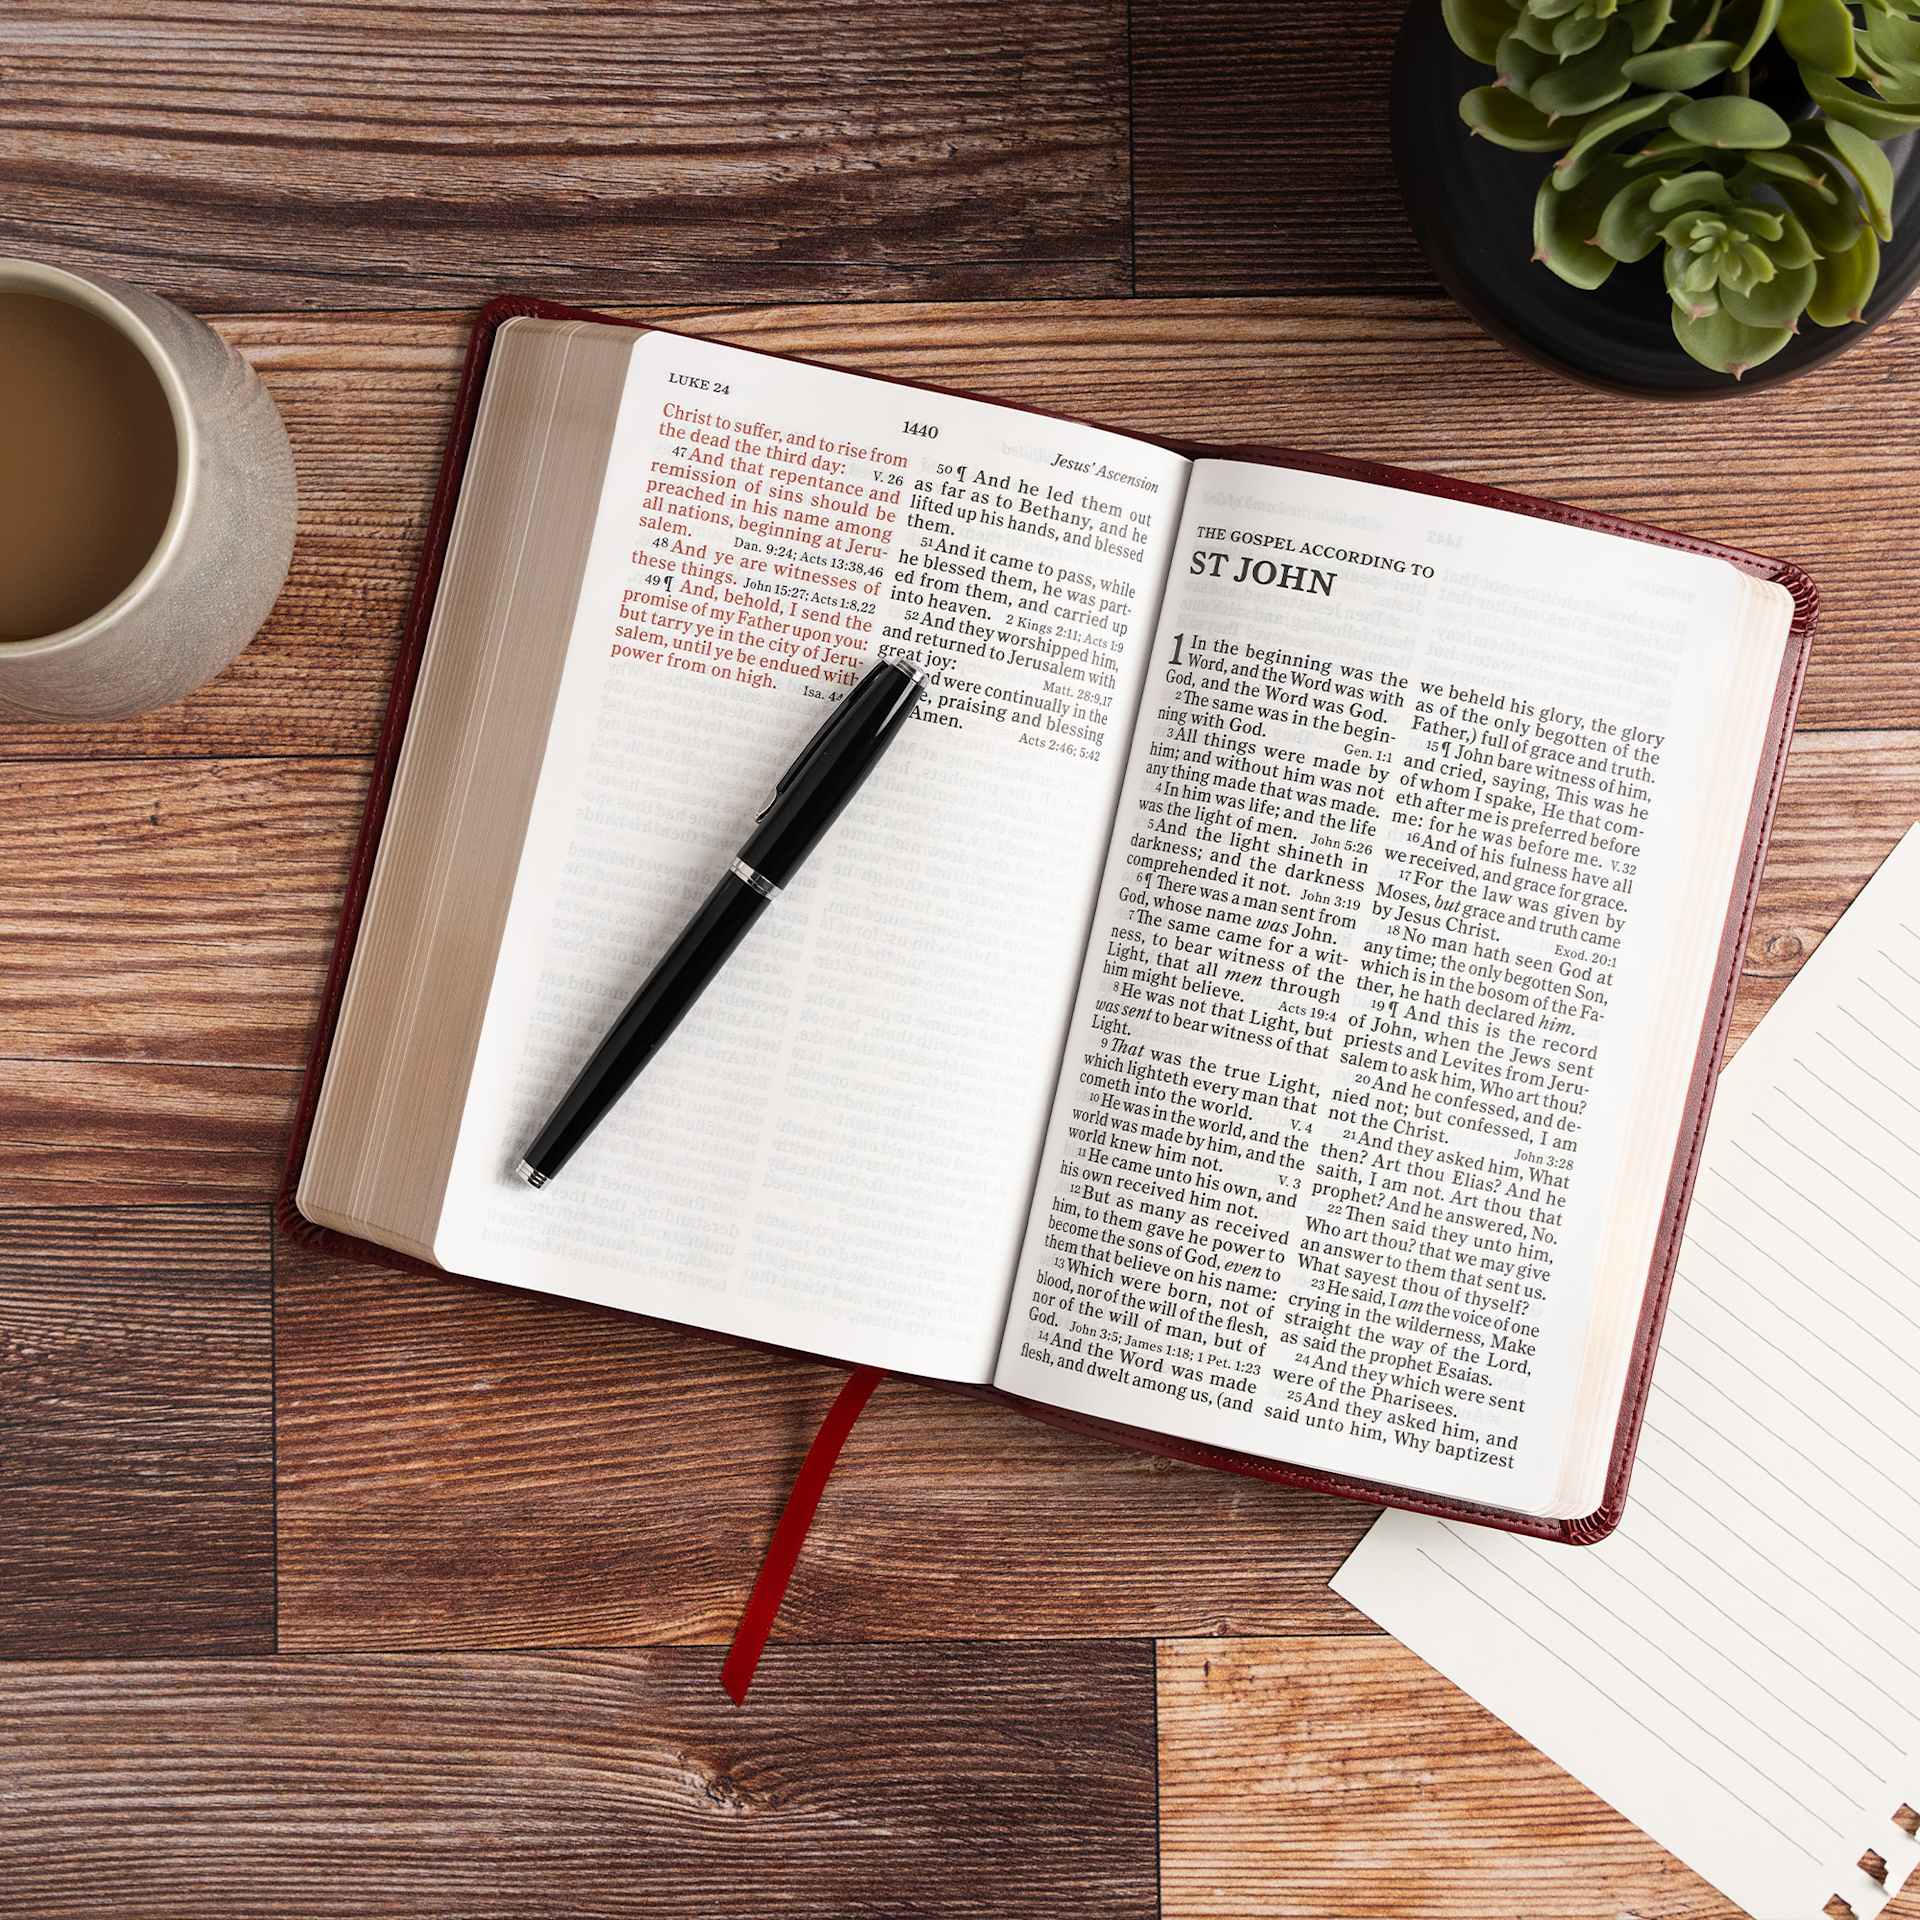 LUKE 24
1440
Jesus' Ascension
Christ to suffer, and to rise from
the dead the third day: V. 26
47 And that repentance and
remission of sins should be
preached in his name among
all nations, beginning at Jeru-
salem. Dan. 9:24; Acts 13:38,46
48 And ye are witnesses of
these things. John 15:27; Acts 1:8,22
49 ¶ And, behold, I send the
promise of my Father upon you:
but tarry ye in the city of Jeru-
salem, until ye be endued with
power from on high. Isa. 44
50 ¶ And he led them out
as far as to Bethany, and he
lifted up his hands, and blessed
them.
51 And it came to pass, while
he blessed them, he was part-
ed from them, and carried up
into heaven. 2 Kings 2:11; Acts 1:9
52 And they worshipped him,
and returned to Jerusalem with
great joy: Matt. 28:9,17
nd were continually in the
e, praising and blessing
Amen. Acts 2:46; 5:42
THE GOSPEL ACCORDING TO
ST JOHN
1 In the beginning was the
Word, and the Word was with
God, and the Word was God.
2 The same was in the begin-
ning with God. Gen. 1:1
3 All things were made by
him; and without him was not
any thing made that was made.
4 In him was life; and the life
was the light of men. John 5:26
5 And the light shineth in
darkness; and the darkness
comprehended it not. John 3:19
6 ¶ There was a man sent from
God, whose name was John.
7 The same came for a wit-
ness, to bear witness of the
Light, that all men through
him might believe. Acts 19:4
8 He was not that Light, but
was sent to bear witness of that
Light.
9 That was the true Light,
which lighteth every man that
cometh into the world. V. 4
10 He was in the world, and the
world was made by him, and the
world knew him not. V. 3
11 He came unto his own, and
his own received him not.
12 But as many as received
him, to them gave he power to
become the sons of God, even to
them that believe on his name:
13 Which were born, not of
blood, nor of the will of the flesh,
nor of the will of man, but of
God. John 3:5; James 1:18; 1 Pet. 1:23
14 And the Word was made
flesh, and dwelt among us, (and
we beheld his glory, the glory
as of the only begotten of the
Father,) full of grace and truth.
15 ¶ John bare witness of him,
and cried, saying, This was he
of whom I spake, He that com-
eth after me is preferred before
me: for he was before me. V. 32
16 And of his fulness have all
we received, and grace for grace.
17 For the law was given by
Moses, but grace and truth came
by Jesus Christ. Exod. 20:1
18 No man hath seen God at
any time; the only begotten Son,
which is in the bosom of the Fa-
ther, he hath declared him.
19 ¶ And this is the record
of John, when the Jews sent
priests and Levites from Jeru-
salem to ask him, Who art thou?
20 And he confessed, and de-
nied not; but confessed, I am
not the Christ. John 3:28
21 And they asked him, What
then? Art thou Elias? And he
saith, I am not. Art thou that
prophet? And he answered, No.
22 Then said they unto him,
Who art thou? that we may give
an answer to them that sent us.
What sayest thou of thyself?
23 He said, I am the voice of one
crying in the wilderness, Make
straight the way of the Lord,
as said the prophet Esaias.
24 And they which were sent
were of the Pharisees.
25 And they asked him, and
said unto him, Why baptizest